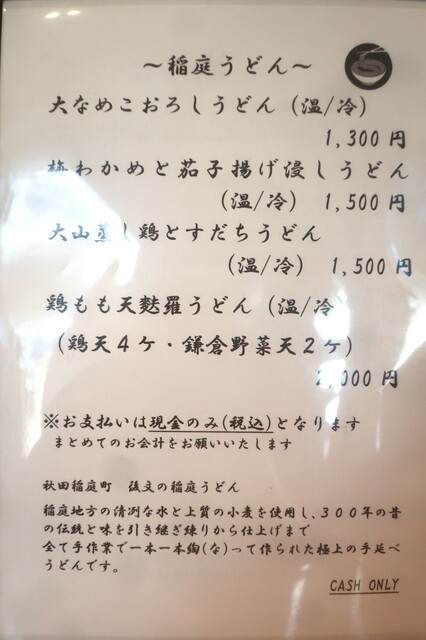 ～稲庭うどん～
大なめこおろしうどん（温/冷）
1,300 円
梅わかめと茄子揚げ浸しうどん
（温/冷） 1,500 円
大山蒸し鶏とすだちうどん
（温/冷） 1,500 円
鶏もも天麩羅うどん（温/冷）
（鶏天４ケ・鎌倉野菜天２ケ）
2,000 円
※お支払いは現金のみ(税込)となります
まとめてのお会計をお願いいたします
秋田稲庭町　後文の稲庭うどん
稲庭地方の清冽な水と上質の小麦を使用し、３００年の昔
の伝統と味を引き継ぎ練りから仕上げまで
全て手作業で一本一本綯(な)って作られた極上の手延べ
うどんです。
CASH ONLY